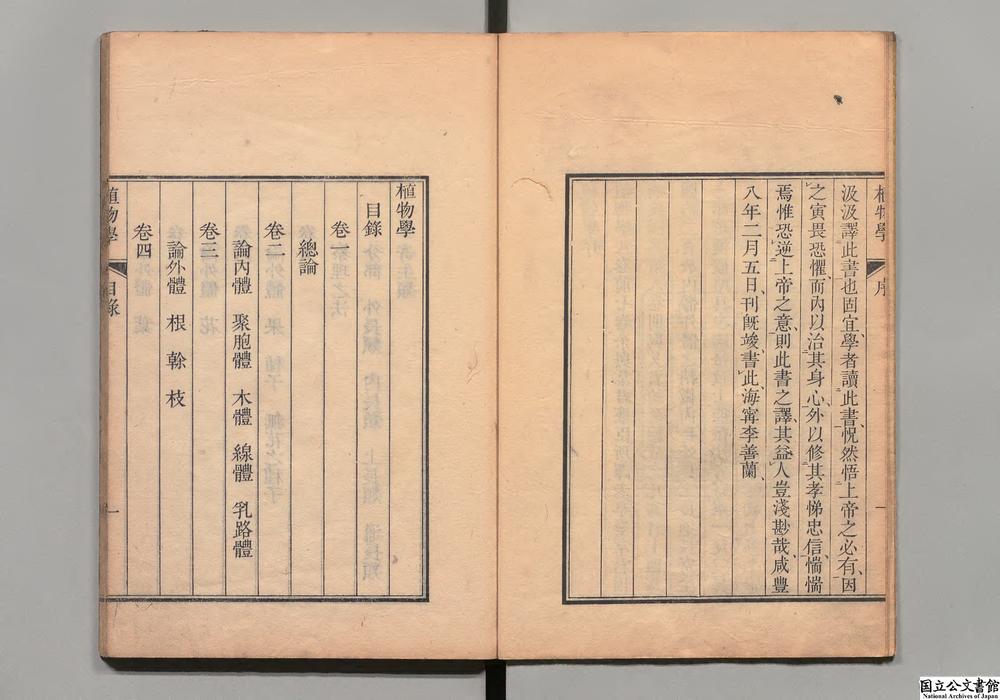 植物學 序 一
汲汲譯此書也固宜學者讀此書恍然悟上帝之必有因
之寅畏恐懼而內以治其身心外以修其孝悌忠信惴惴
焉惟恐逆上帝之意則此書之譯其益人豈淺尠哉咸豐
八年二月五日刊既竣書此海甯李善蘭
植物學
目錄
卷一
總論
卷二
論內體 聚胞體 木體 線體 乳路體
卷三
論外體 根 榦 枝
卷四
植物學 目錄 一
国立公文書館
National Archives of Japan